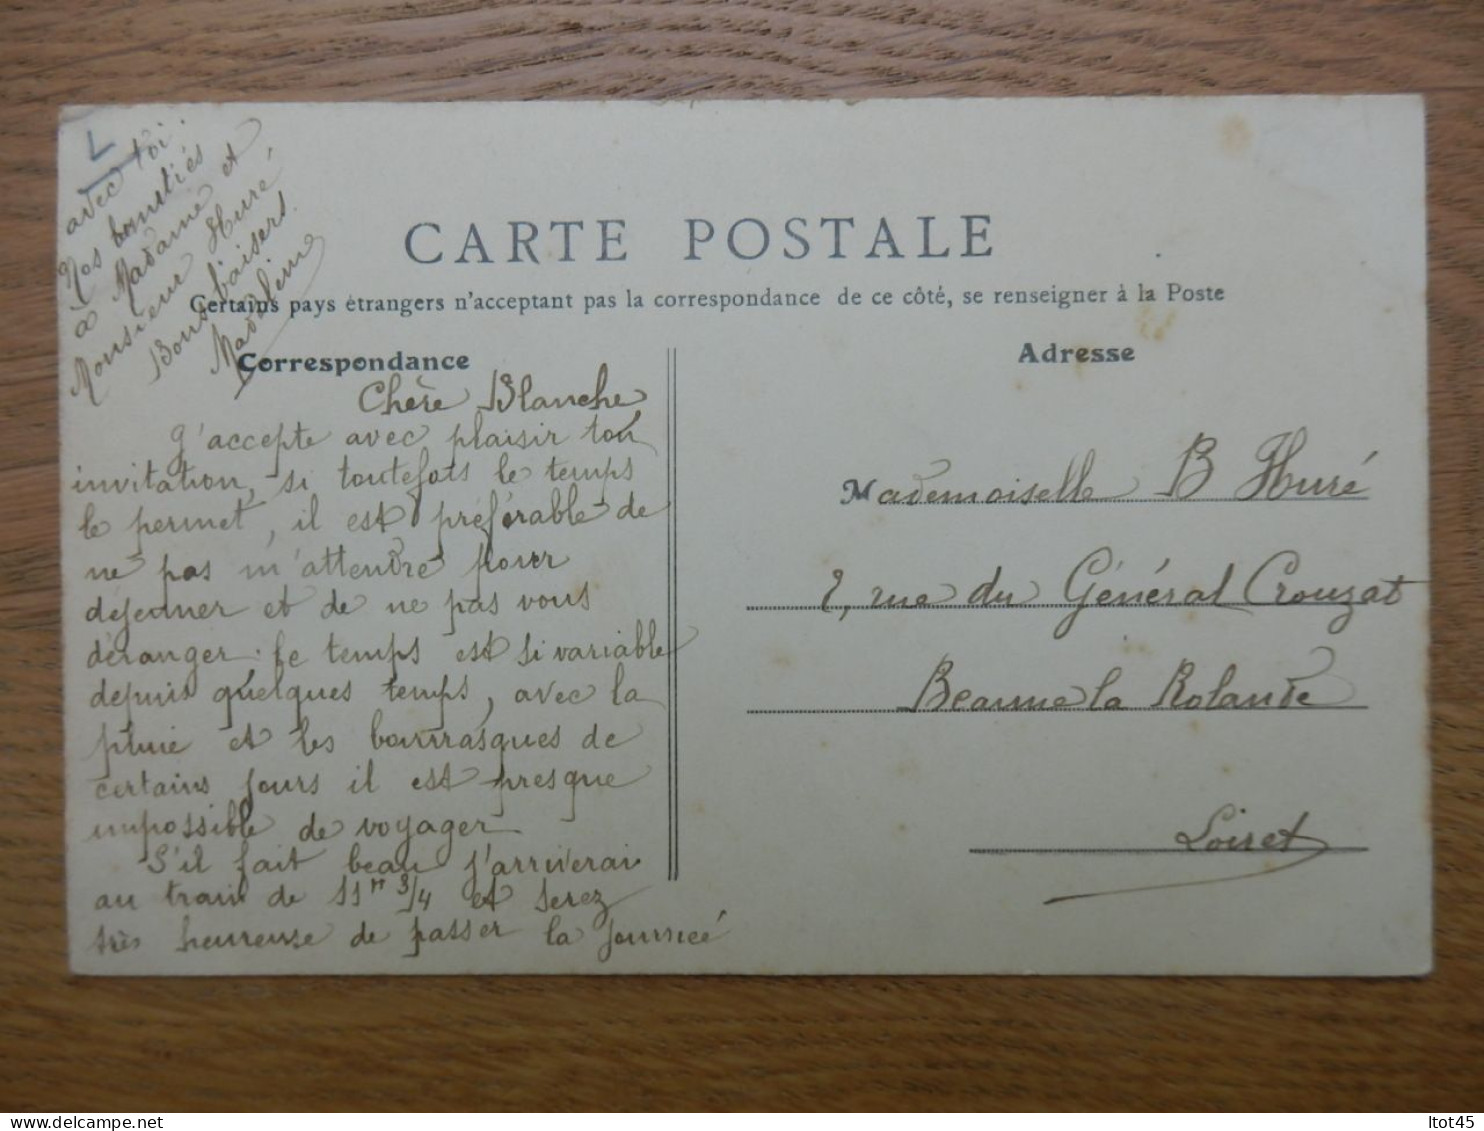 CARTE POSTALE
Certains pays étrangers n'acceptant pas la correspondance de ce côté, se renseigner à la Poste
Correspondance
Chère Blanche
J'accepte avec plaisir ton
invitation, si toutefois le temps
le permet, il est préférable de
ne pas m'attendre pour
déjeuner et de ne pas vous
déranger. Le temps est si variable
depuis quelques temps, avec la
pluie et les bourrasques de
certains jours il est presque
impossible de voyager
S'il fait beau j'arriverai
au train de 11h 3/4 et serez
très heureuse de passer la journeé
avec toi.
Nos amitiés
à Madame et
Monsieur Huré
Bons baisers
Madeleine
Adresse
Mademoiselle B Huré
2, rue du Général Crouzat
Beaune la Rolande
Loiret
ltot45